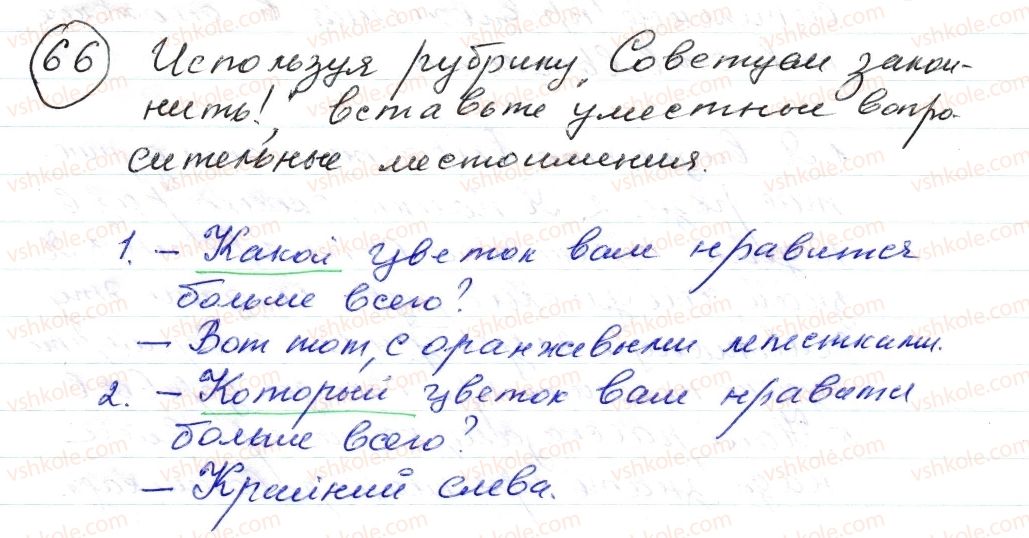 66 Используя рубрику „Советуем запом-
нить!", вставьте уместные вопро-
сительные местоимения.
1. – Какой цветок вам нравится
больше всего?
– Вот тот, с оранжевыми лепестками.
2. – Который цветок вам нравится
больше всего?
– Крайний слева.